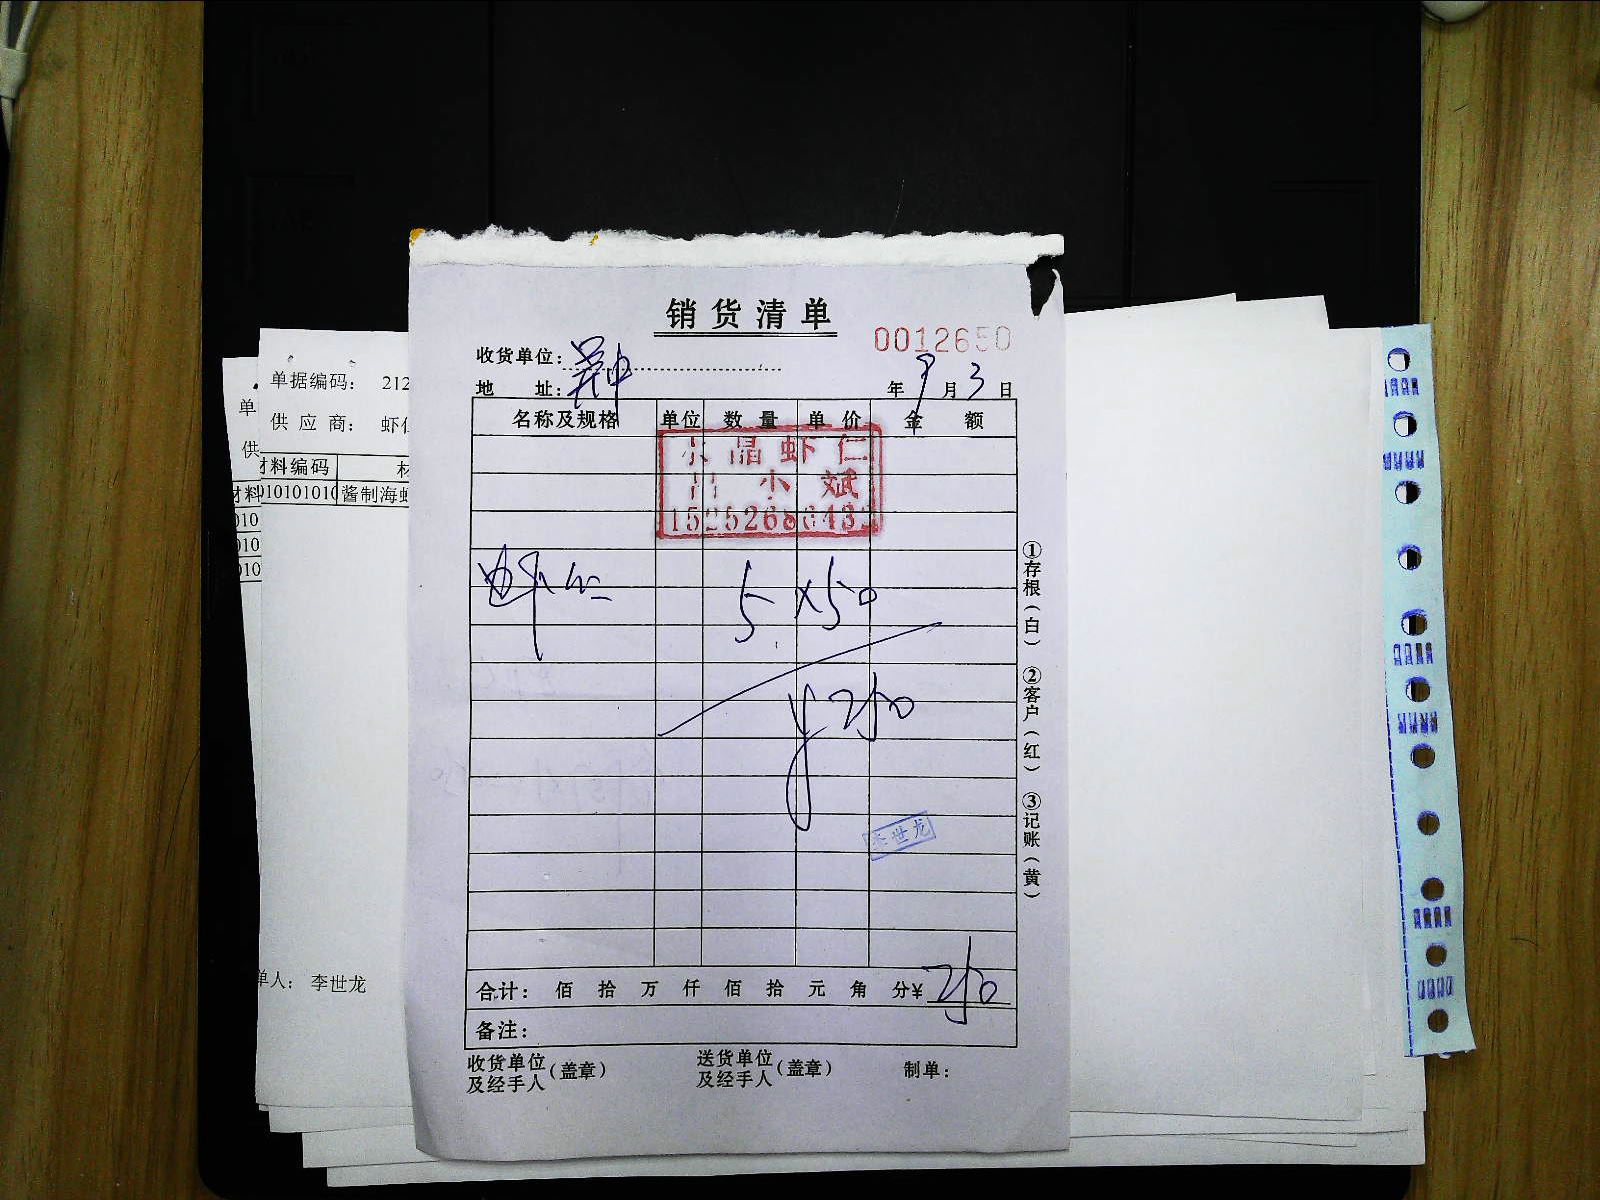 销货清单
0012650
收货单位:
地 址:
年 9 月 3 日
名称及规格 单位 数量 单价 金额
水晶虾仁
小斌
虾仁 5 × 50
¥ 250
李世龙
合计: 佰 拾 万 仟 佰 拾 元 角 分¥ 250
备注:
收货单位及经手人(盖章) 送货单位及经手人(盖章) 制单:
①存根(白) ②客户(红) ③记账(黄)
单据编码: 212
供应商: 虾仁
材料编码 材
01010101 酱制海
单人: 李世龙
单
供
材料
010
010
010